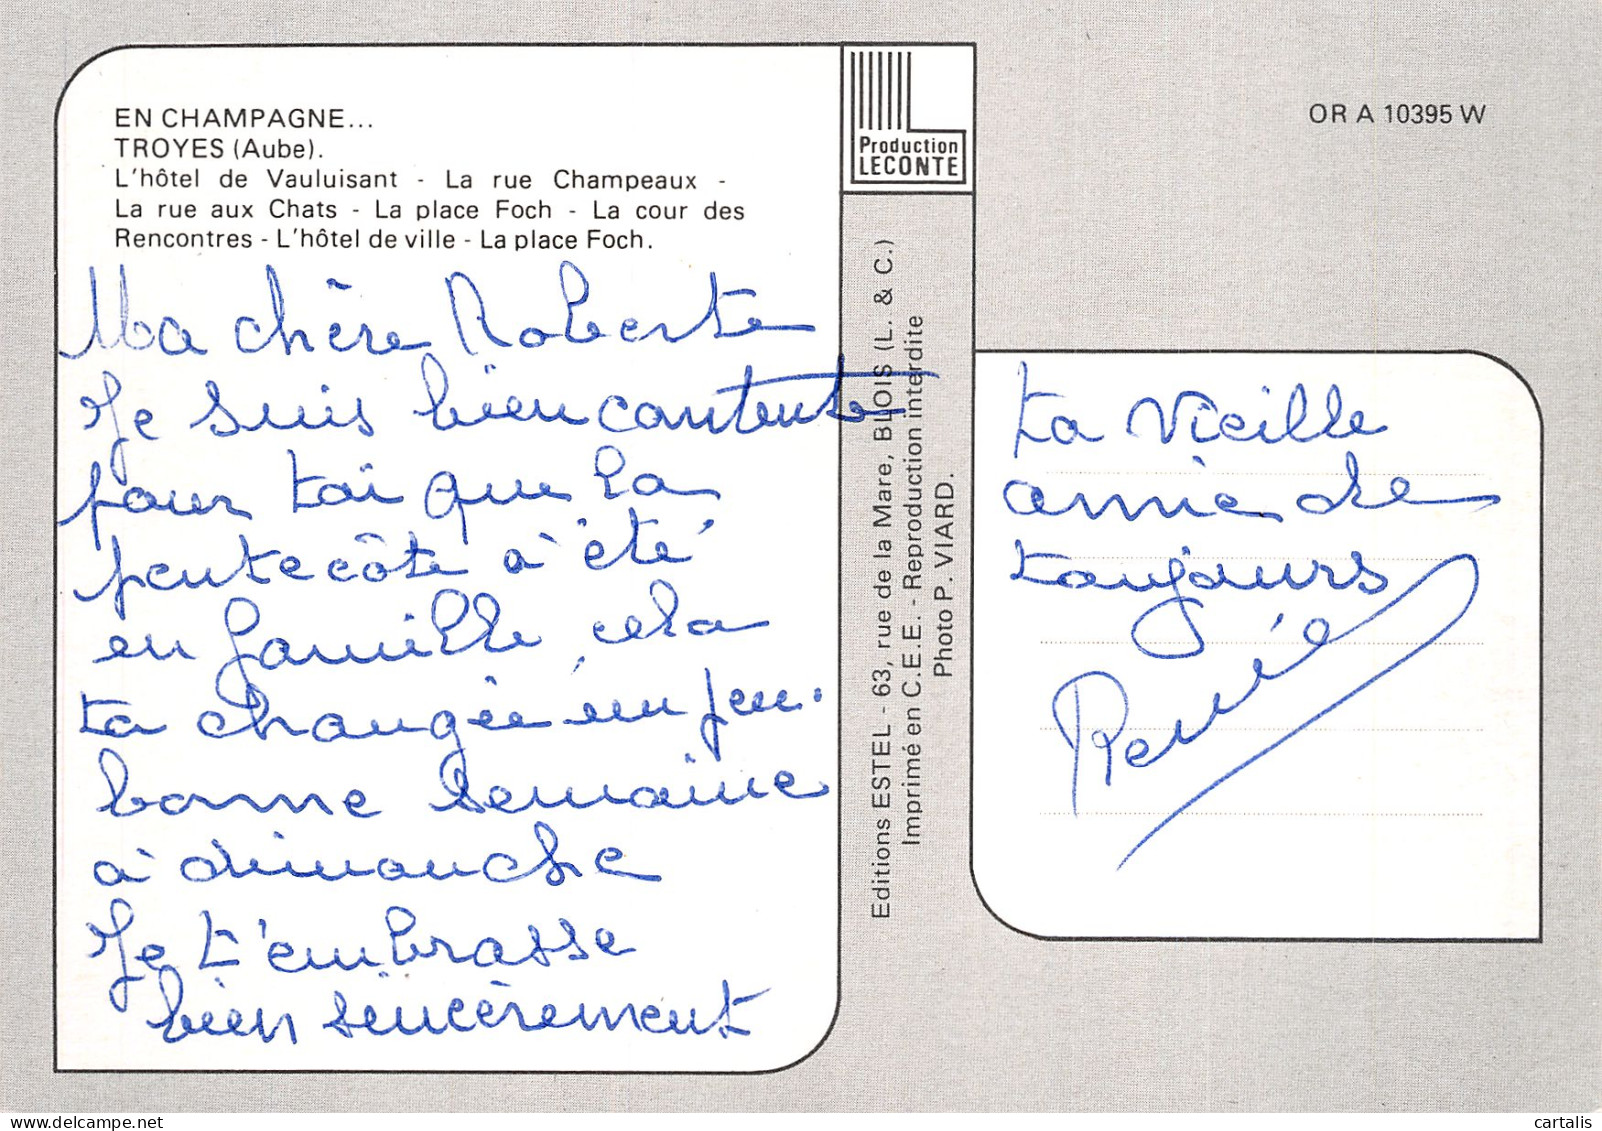 EN CHAMPAGNE...
TROYES (Aube).
L'hôtel de Vauluisant - La rue Champeaux -
La rue aux Chats - La place Foch - La cour des
Rencontres - L'hôtel de ville - La place Foch.
Ma chère Roberte
Je suis bien contente
pour toi que la
pentecôte à été
en famille, cela
ta changée un peu.
bonne semaine
à dimanche
Je t'embrasse
bien sincèrement
Production
LECONTE
Editions ESTEL - 63, rue de la Mare, BLOIS (L. & C.)
Imprimé en C.E.E. - Reproduction interdite
Photo P. VIARD.
OR A 10395 W
ta vieille
amie de
toujours
Renée
cartalis